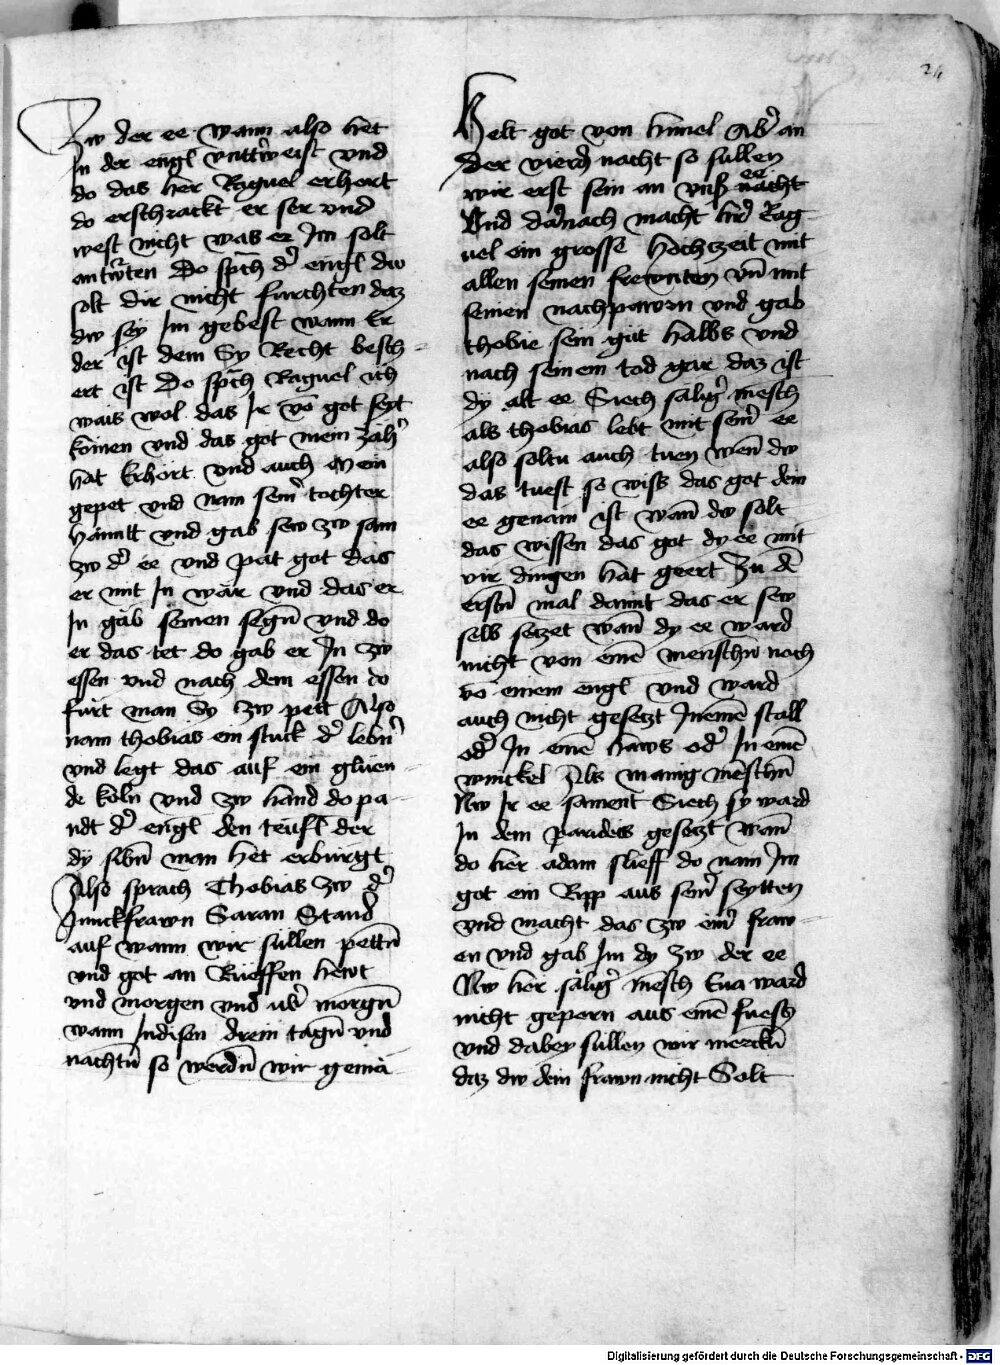 24
Zw der ee wann also het
In der engl vnttˀweist vnd
do das her Raguel erhort
do erschrackt er ser vnd
west nicht was er Im solt
antwˀten Do spͬch dˀ engl dw
solt dir nicht furchten daz
dw sey Im gebest wann Er
der ist dem Sy Recht besch-
ert ist Do spͬch Raguel ich
wais wol das Ir võ got seyt
kömen vnd das got mein zähˀ
hat Erhört vnd auch Mein
gepet vnd nam seinˀ tochter
hanntt vnd gab sew zw sam
zw dˀ ee vnd pat got das
er mit In wär vnd das er
In gäb seinen segñ vnd do
er das tet do gab er In zw
essen vnd nach dem essen do
fürt man Sy zw pett Also
nam thobias ein stuck dˀ lebñˀ
vnd legt das auf ein gluen-
de köln vnd zw hand do pa-
ndt dˀ engl den teufl der
dy sibñ man het erburgt
Also sprach Thobias zw dˀ
Junckfrawn Saran Stand
auf wann wir sullen pettñ
vnd got an Rüeffen hewt
vnd morgen vnd ubˀ morgñ
wann Indisen drein tagñ vnd
nachtñ so werdñ wir gemä
Helt got von himel Abˀ an
der vierdñ nacht so sullen
wir erst sein an vnß ee nacht
Vnd darnach macht herˀ Rag-
uel ein grosse hochzeit mit
allen seinen frewnten vñ mit
seinen nachpawrn vnd gab
thobie sein güt halbs vnd
nach seinem tod gar daz ist
dy alt ee Siech säligˀ mesch
als thobias lebt mit seinˀ ee
also soltu auch tuen wenñ dw
das tuest so wiss das got dein
ee genäm ist wanñ dw solt
das wissen das got dy ee mit
vir dingen hat geert Zu dẽ
erstñ mal damit das er sew
selb setzet wanñ dy ee ward
nicht von einẽ menschñ noch
võ einem engl vnd ward
auch nicht gesetzt Ineinẽ stall
odˀ In einẽ haws odˀ In einẽ
winckel Als manig menschñ
Nw Ir ee sament Siech sy ward
In dem paradeis gesetzt wanñ
do her adam slieff do nam Im
got ein Ripp aus seinˀ seytten
vnd macht das zw einˀ fraw-
en vnd gab Im dy zw der ee
Nw her säligˀ mesch Eua ward
nicht geporn aus einẽ fuess
vnd dabey sullen wir merckñ
daz dw dein frawn nicht Solt
Digitalisierung gefördert durch die Deutsche Forschungsgemeinschaft - DFG